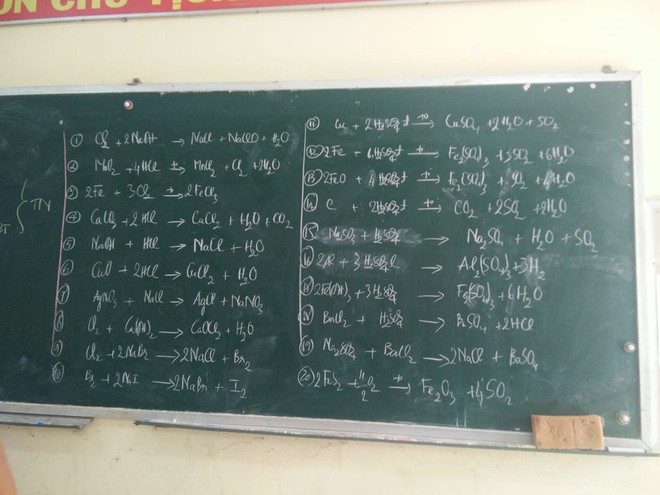 ÔN CHỦ TỊCH
TN
BT
① Cl2 + 2NaOH → NaCl + NaClO + H2O
② MnO2 + 4HCl →(t°) MnCl2 + Cl2 + 2H2O
③ 2Fe + 3Cl2 →(t°) 2FeCl3
④ CaCO3 + 2HCl → CaCl2 + H2O + CO2
⑤ NaOH + HCl → NaCl + H2O
⑥ CuO + 2HCl → CuCl2 + H2O
⑦ AgNO3 + NaCl → AgCl + NaNO3
⑧ Cl2 + Ca(OH)2 → CaOCl2 + H2O
⑨ Cl2 + 2NaBr → 2NaCl + Br2
⑩ Br2 + 2NaI → 2NaBr + I2
⑪ Cu + 2H2SO4đ →(t°) CuSO4 + 2H2O + SO2
⑫ 2Fe + 6H2SO4đ →(t°) Fe2(SO4)3 + 3SO2 + 6H2O
⑬ 2FeO + 4H2SO4đ →(t°) Fe2(SO4)3 + SO2 + 4H2O
⑭ C + 2H2SO4đ →(t°) CO2 + 2SO2 + 2H2O
⑮ Na2SO3 + H2SO4 → Na2SO4 + H2O + SO2
⑯ 2Al + 3H2SO4l → Al2(SO4)3 + 3H2
⑰ 2Fe(OH)3 + 3H2SO4 → Fe2(SO4)3 + 6H2O
⑱ BaCl2 + H2SO4 → BaSO4 + 2HCl
⑲ Na2SO4 + BaCl2 → 2NaCl + BaSO4
⑳ 2FeS2 + 11/2 O2 →(t°) Fe2O3 + 4SO2